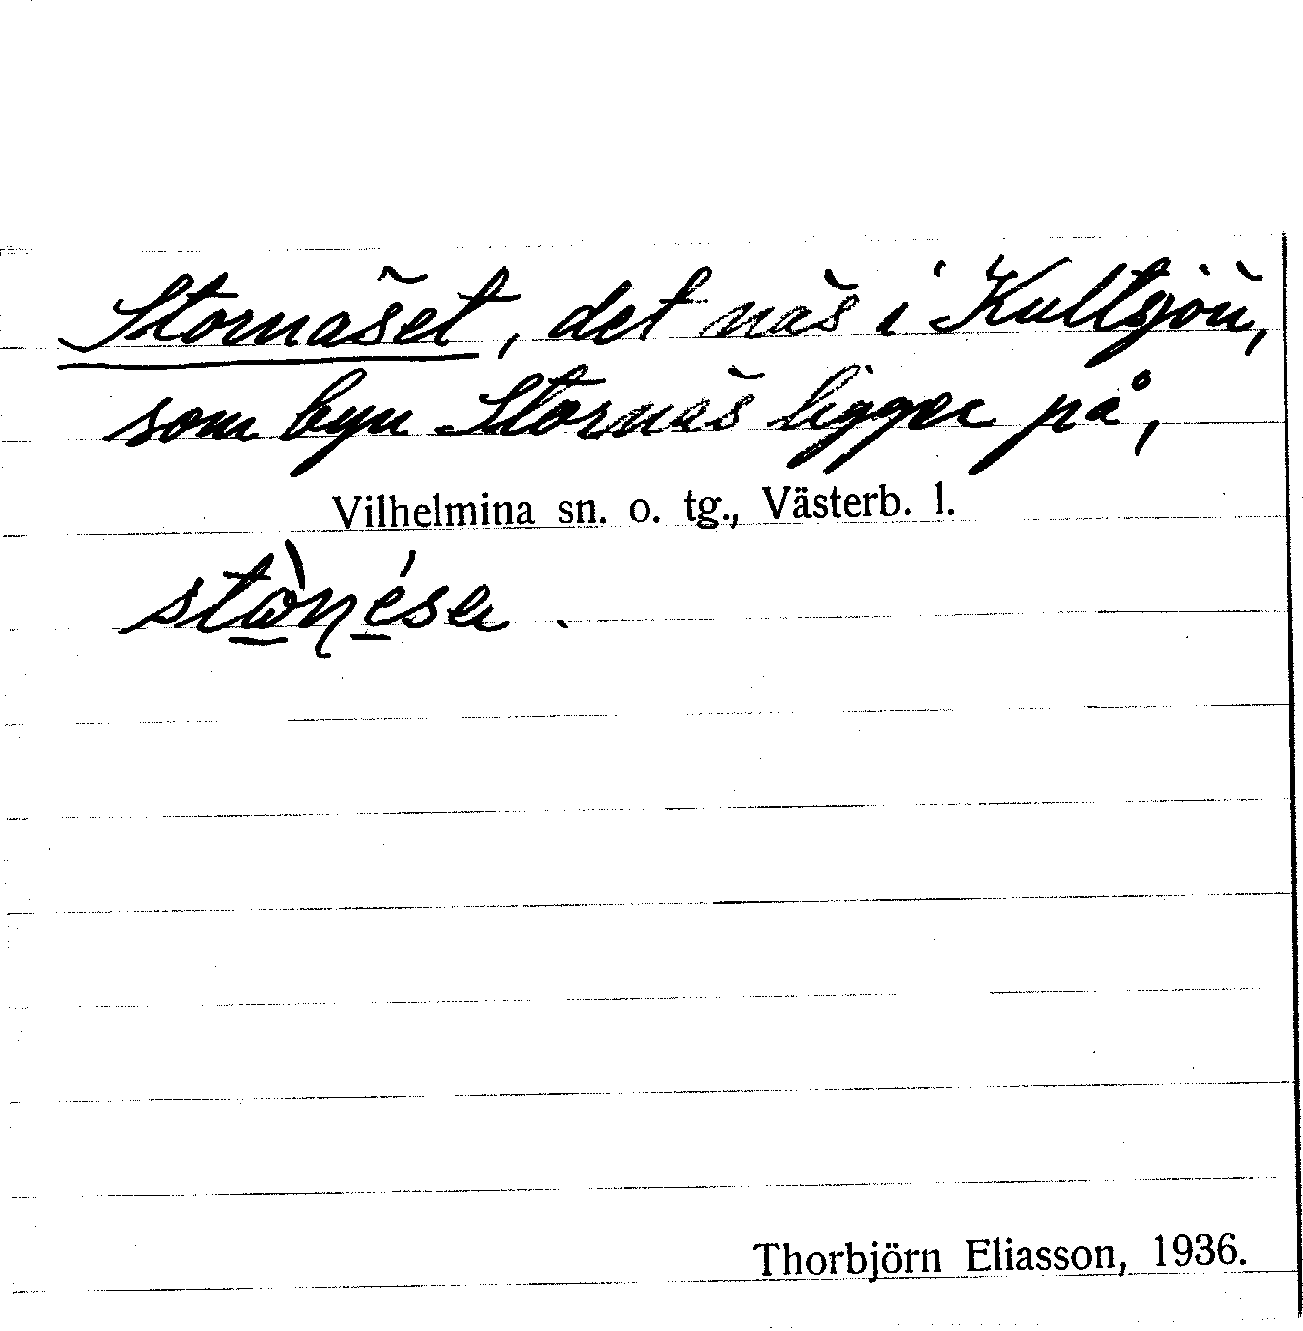 Stornäset, det näs i Kultsjön,
som byn Stornäs ligger på,
Vilhelmina sn. o. tg., Västerb. l.
Thorbjörn Eliasson, 1936.